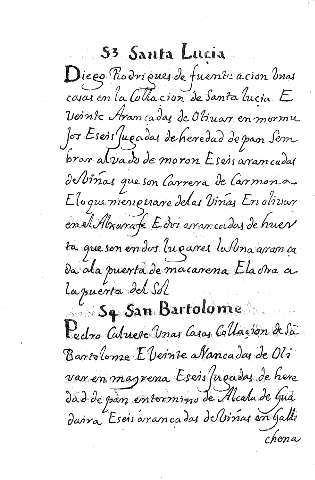 53 Santa Lucia
Diego Rodrigues de fuente acion Unas
casas en la Collacion de Santa Lucia E
Veinte Arancadas de Olivar en mormu
jos E seis Jugadas de heredad de pan Sem
brar al vado de moron E seis arancadas
de Viñas que son Carrera de Carmona
E lo que menguare de las Viñas En olivar
en el Alxarafe E dos arrancadas de huer
ta que son en dos lugares la Una arança
da a la puerta de macarena E la otra a
la puerta del Sol
54 San Bartolome
Pedro Calvete Unas Casas Collaçion de Sã
Bartolome E Veinte aRancadas de Oli
var en mayrena E seis Jugadas de here
dad de pan en termino de Alcala de Gua
daira E seis arancadas de Viñas en Galli
chena